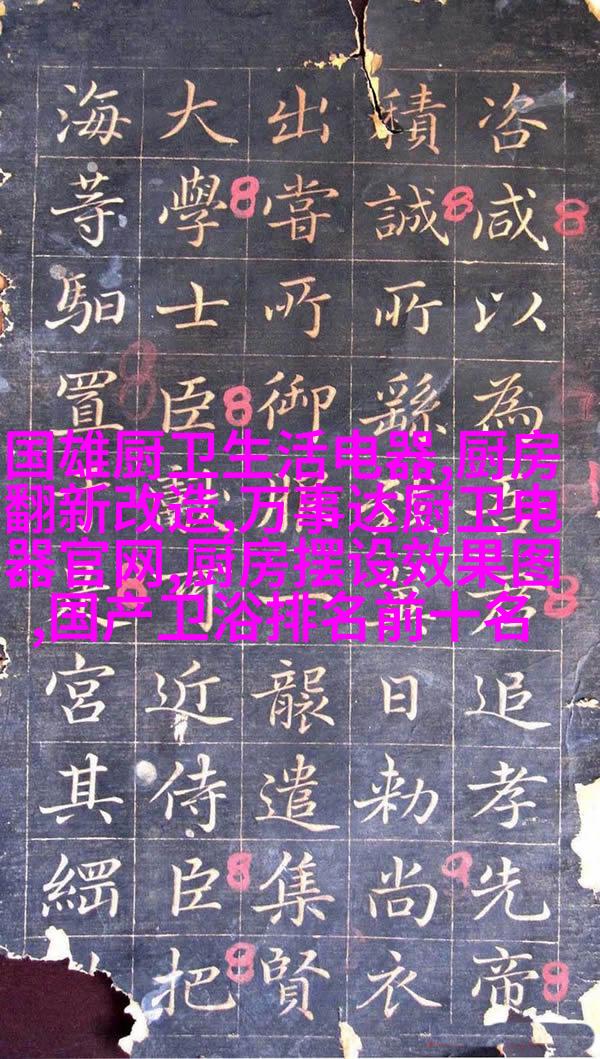 咨咸以為追孝先帝
積誠所繇日勑尚衣
出嘗所御襲遣集賢
大學士臣近侍臣把
海䓁馹置宮其
国雄厨卫生活电器,厨房
翻新改造,万事达厨卫电
器官网,厨房摆设效果图
,国产卫浴排名前十名